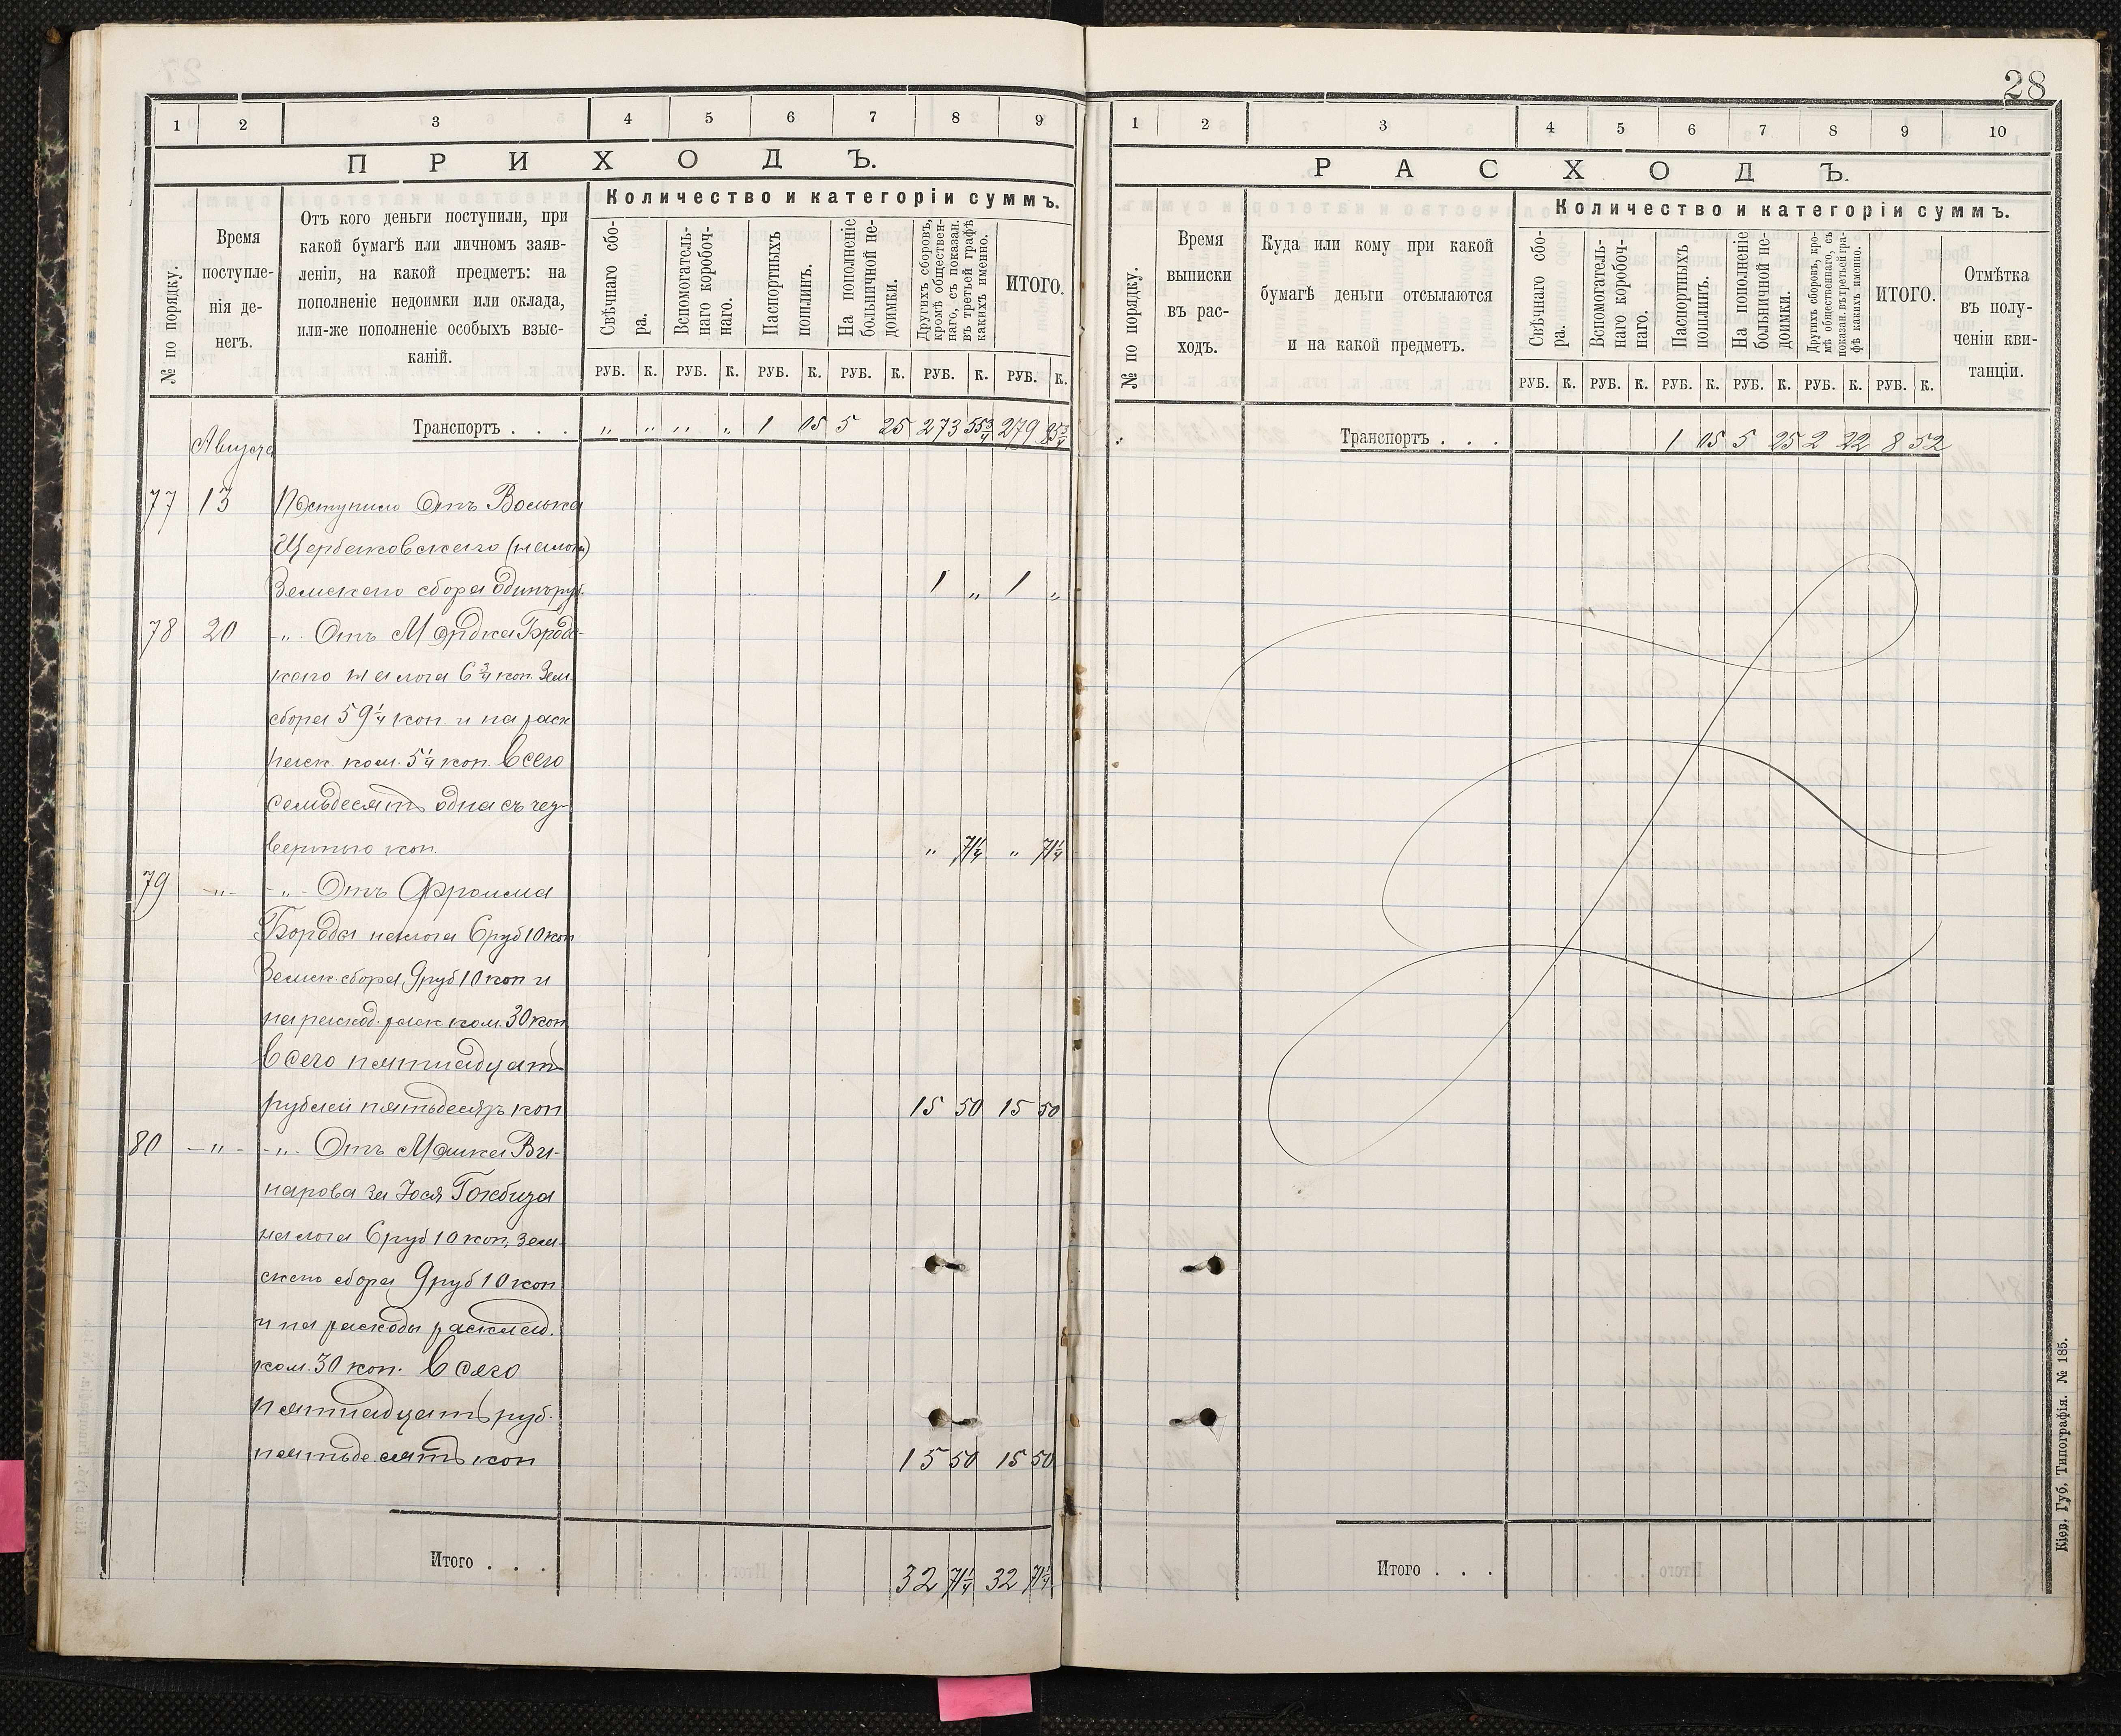 28
1 2 3 4 5 6 7 8 9
ПРИХОДЪ.
№ по порядку.
Время
поступле-
нія де-
негъ.
Отъ кого деньги поступили, при
какой бумагѣ или личномъ заяв-
леніи, на какой предметъ: на
пополненіе недоимки или оклада,
или-же пополненіе особыхъ взыс-
каній.
Количество и категоріи суммъ.
Свѣчнаго сбо-
ра.
Вспомогатель-
наго коробоч-
наго.
Паспортныхъ
пошлинъ.
На пополненіе
больничной не-
доимки.
Другихъ сборовъ,
кромѣ обществен-
наго, съ показан.
въ третьей графѣ
какихъ именно.
ИТОГО.
РУБ. К. РУБ. К. РУБ. К. РУБ. К. РУБ. К. РУБ. К.
Транспортъ . . . „ „ „ „ 1 05 5 25 273 55¾ 279 85¾
Августа
77 13 Поступило Отъ Волька
Щербаковскаго (налога)
Земскаго сбора Одинъ руб. 1 „ 1 „
78 20 -„- Отъ Мордка Бродс-
каго налога 6¾ коп. Зем.
сбора 59¼ коп. и на раск
раск. ком. 5¼ коп. Всего
семьдесятъ одна съ чет-
вертью коп. „ 71¼ „ 71¼
79 -„- -„- Отъ Фроима
Борода налога 6 руб 10 коп
Земск. сбора 9 руб 10 коп и
на расход. раск ком. 30 коп
Всего пятнадцать
рублей пятьдесятъ коп 15 50 15 50
80 -„- -„- Отъ Мошка Ви-
нарова за Іося
налога 6 руб 10 коп, зем-
скаго сбора 9 руб 10 коп
и на расходы расклад.
ком. 30 коп. Всего
пятнадцать руб.
пятьдесятъ коп 15 50 15 50
Итого . . . 32 71¼ 32 71¼
1 2 3 4 5 6 7 8 9 10
РАСХОДЪ.
№ по порядку.
Время
выписки
въ рас-
ходъ.
Куда или кому при какой
бумагѣ деньги отсылаются
и на какой предметъ.
Количество и категоріи суммъ.
Свѣчнаго сбо-
ра.
Вспомогатель-
наго коробоч-
наго.
Паспортныхъ
пошлинъ.
На пополненіе
больничной не-
доимки.
Другихъ сборовъ, кро-
мѣ общественнаго, съ
показан. въ третьей гра-
фѣ какихъ именно.
ИТОГО.
Отмѣтка
въ полу-
ченіи кви-
танціи.
РУБ. К. РУБ. К. РУБ. К. РУБ. К. РУБ. К. РУБ. К.
Транспортъ . . . 1 05 5 25 2 22 8 52
Итого . . .
Кіев. Губ. Типографія. № 185.